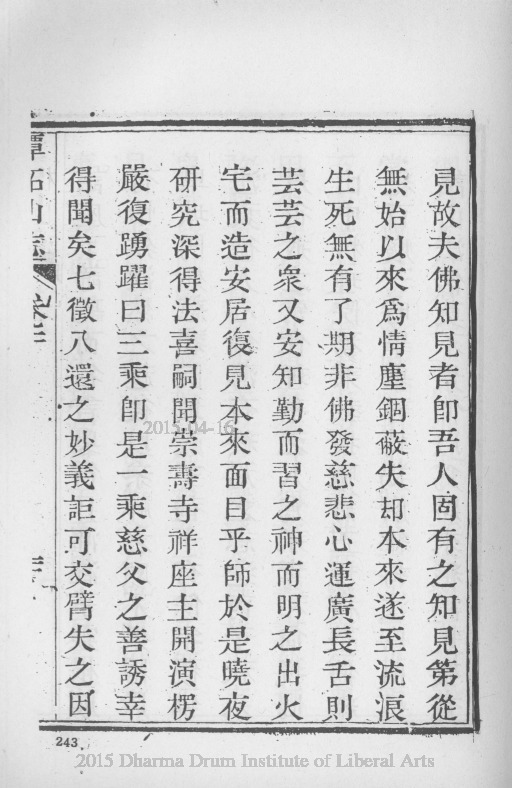 見故夫佛知見者卽吾人固有之知見第從
無始以來爲情塵錮蔽失却本來遂至流浪
生死無有了期非佛發慈悲心運廣長舌則
芸芸之衆又安知勤而習之神而明之出火
宅而造安居復見本來面目乎師於是曉夜
研究深得法喜嗣開崇壽寺祥座主開演楞
嚴復踴躍曰三乘卽是一乘慈父之善誘幸
得聞矣七徵八還之妙義詎可交臂失之因
潭柘山志
2015-04-16
243
2015 Dharma Drum Institute of Liberal Arts